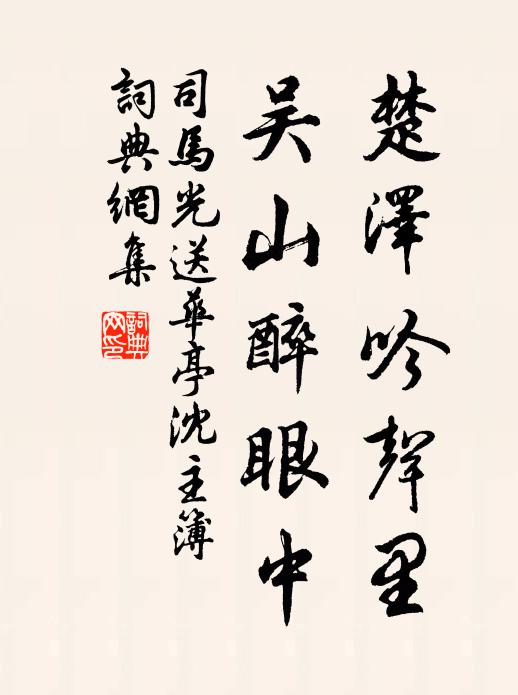 楚澤吟聲里
吳山醉眼中
司馬光送華亭沈主簿
詞典網集
詞典網印